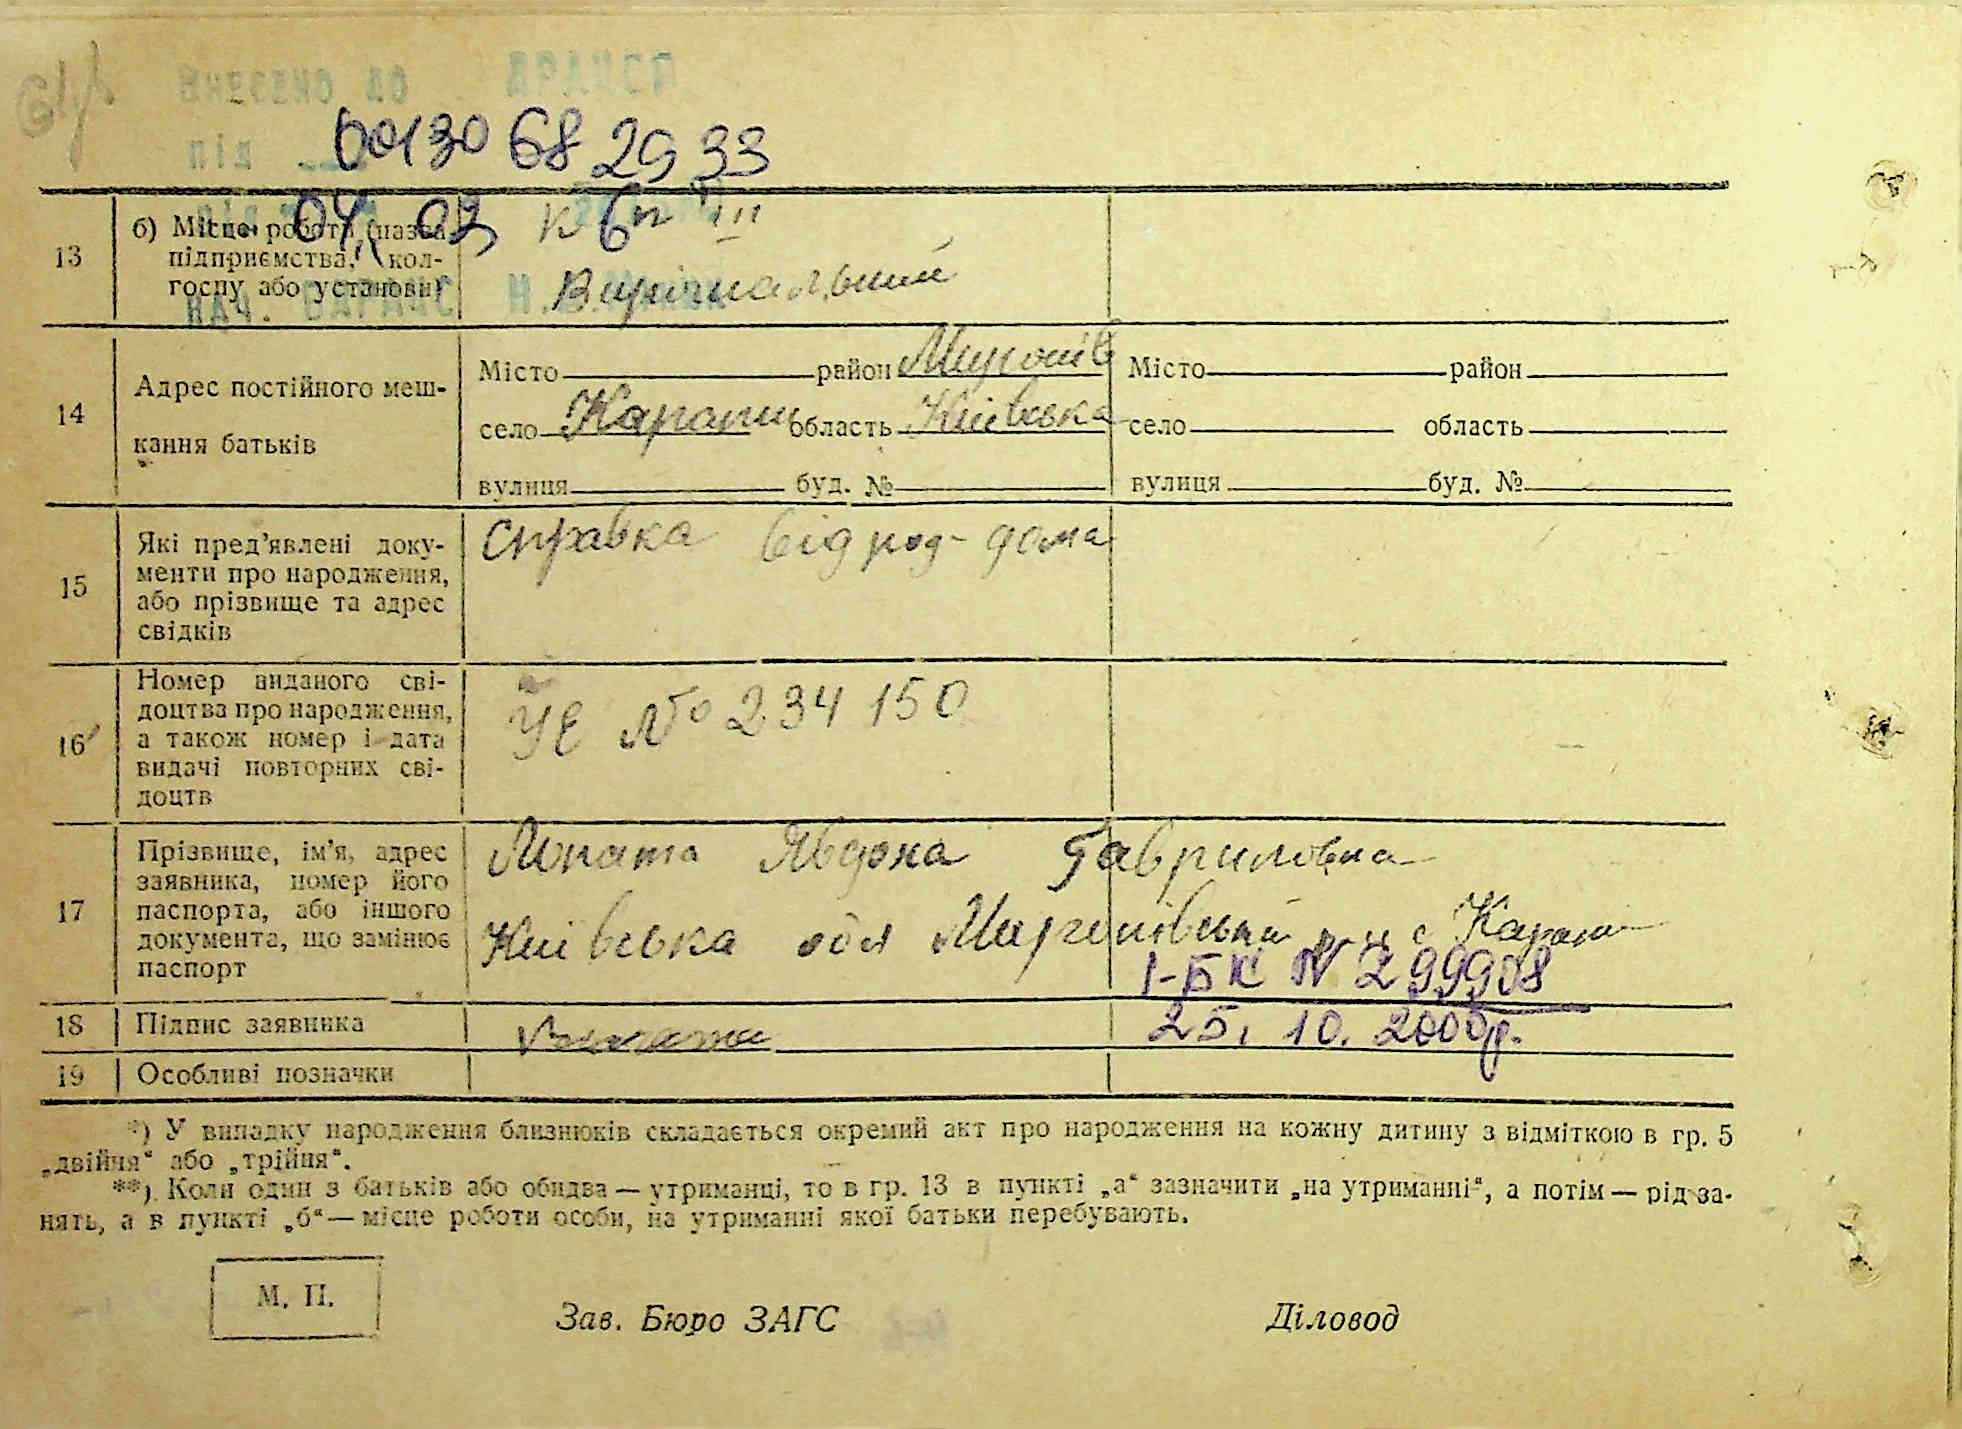 68 29 33
13
б) Місце роботи (назва
підприємства, кол-
госпу або установи)
Вирішальний
14
Адрес постійного меш-
кання батьків
Місто район Миронів
село Карапиш область Київська
вулиця буд. №
Місто район
село область
вулиця буд. №
15
Які пред’явлені доку-
менти про народження,
або прізвище та адрес
свідків
справка від род-дома
16
Номер виданого сві-
доцтва про народження,
а також номер і дата
видачі повторних сві-
доцтв
УЕ № 234150
17
Прізвище, ім’я, адрес
заявника, номер його
паспорта, або іншого
документа, що замінює
паспорт
Лопата Явдоха Гавриловна
Київська обл Миронівський р-н с Карапиш
І-БК № 299908
25. 10. 2000р.
18
Підпис заявника
19
Особливі позначки
*) У випадку народження близнюків складається окремий акт про народження на кожну дитину з відміткою в гр. 5
„двійня“ або „трійня“.
**) Коли один з батьків або обидва — утриманці, то в гр. 13 в пункті „а“ зазначити „на утриманні“, а потім — рід за-
нять, а в пункті „б“ — місце роботи особи, на утриманні якої батьки перебувають.
М. П.
Зав. Бюро ЗАГС
Діловод